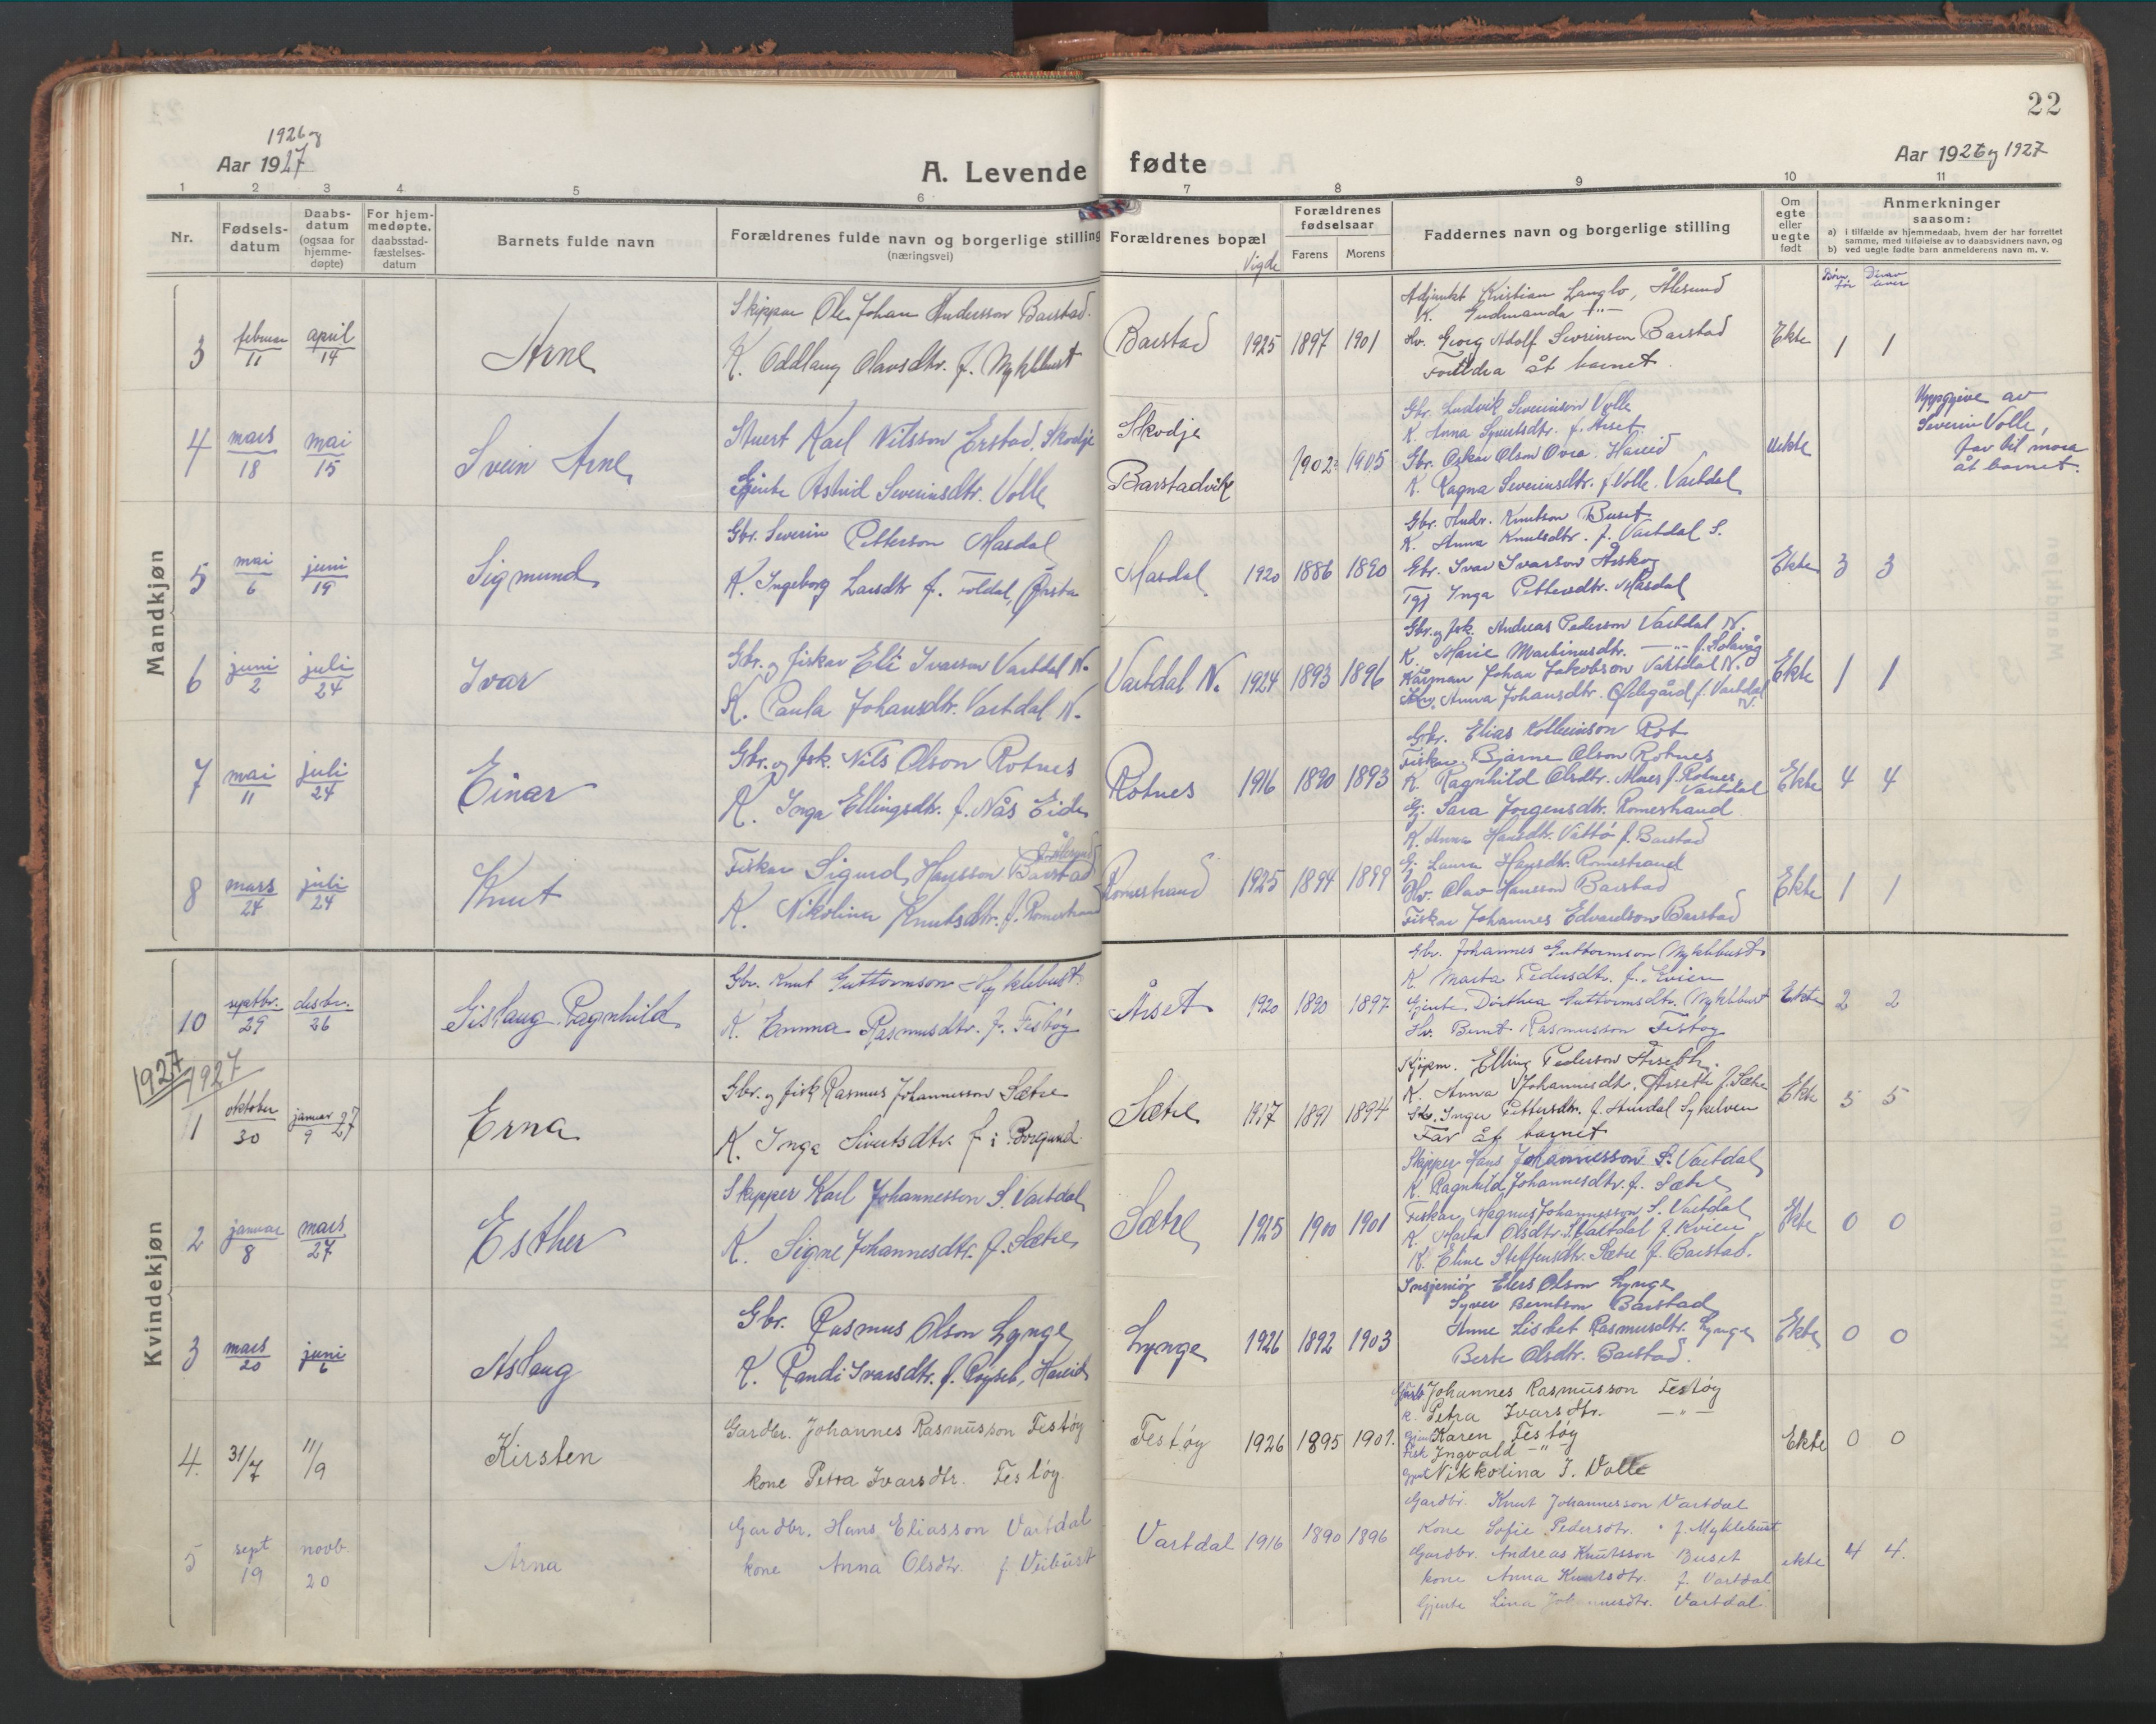 22
1926 og
Aar 1927
A. Levende fødte
Aar 1926 og 1927
1 2 3 4 5 6 7 8 9 10 11
Nr.
Fødsels-
datum
Daabs-
datum
(ogsaa for
hjemme-
døpte)
For hjem-
medøpte.
daabsstad-
fæstelses-
datum
Barnets fulde navn
Forældrenes fulde navn og borgerlige stilling
(næringsvei)
Forældrenes bopæl
Vigde
Forældrenes
fødselsaar
Farens
Morens
Faddernes navn og borgerlige stilling
Om
egte
eller
uegte
født
Anmerkninger
saasom:
a) i tilfælde av hjemmedaab, hvem der har forrettet
samme, med tilføielse av to daabsvidners navn, og
b) ved uegte fødte barn anmelderens navn m. v.
Mandkjøn
3
februar
11
april
14
Arne
Skippar Ole Johan Andersson Barstad.
K. Oddlaug Olavsdtr. f. Myklebust
Barstad
1925 1897 1901
Adjunkt Kristian Langlo, Ålesund
K. Gudmunda -"-
Hv. Georg Adolf Severinsen Barstad
Foreldra åt barnet.
Ekte
1 1
4
mars
18
mai
15
Svein Arne
Stuert Karl Nilsson Erstad, Skodje
Gjente Astrid Severinsdtr. Volle
Skodje
Barstadvik
1902 1905
Gbr. Ludvik Severinson Volle
K. Anna Syvertsdtr. f. Årset
Gbr. Oskar Olson Ovra Hareid
K. Ragna Severinsdtr. f. Volle. Vartdal
Uekte
Uppgjeve av
Severin Volle,
far til mora
åt barnet.
5
mai
6
juni
19
Sigmund
Gbr. Severin Petterson Masdal
K. Ingeborg Larsdtr f. Foldal, Ørsta
Masdal
1920 1886 1890
Gbr. Andr. Knutson Buset
K. Anna Knutsdtr. f. Vartdal S.
Gbr. Ivar Ivarson Årskog
Tgj Inga Pettersdtr. Masdal
Ekte
3 3
6
juni
2
juli
24
Ivar
Gbr. og fiskar Eli Ivarson Vartdal N.
K. Paula Johansdtr. Vartdal N.
Vartdal N.
1924 1893 1896
Gbr. og fsk. Andreas Pederson Vartdal N.
K. Marie Martinusdtr. -"- f. Solavåg
Kårman Johan Jakobson Vartdal N.
Anna Johansdtr. Ødegård f. Vartdal
N.
Ekte
1 1
7
mai
11
juli
24
Einar
Gbr. og fsk. Nils Olson Rotnes
K. Inga Ellingsdtr. f. Nås Eide
Rotnes
1916 1890 1893
Gbr. Elias Kolbeinson Rot
Fiskar Bjarne Olson Rotnes
K. Ragnhild Olsdtr. Mnes f. Rotnes
Vartdal
Gj. Sara Jørgensdtr. Romestrand
Ekte
4 4
8
mars
24
juli
24
Knut
Fiskar Sigurd Hansson Barstad
K. Nikolina Knutsdtr. f. Romestrand
Romestrand
1925 1894 1899
K. Anna Hansdtr. Vattø f. Barstad
Gj. Laura Hansdtr. Romestrand
Hv. Olav Hansson Barstad
Fiskar Johannes Edvardson Barstad
Ekte
1 1
Kvindekjøn
10
septbr.
29
desbr.
26
Gislaug Ragnhild
Gbr. Knut Guttormson Myklebust
K. Emma Rasmusdtr. f. Festøy
Årset
1920 1890 1897
Gbr. Johannes Guttormson Myklebust
K Marta Pedersdtr. f.
Gjente Dorthea Guttormsdtr. Myklebust
Hv. Bernt Rasmusson Festøy
Ekte
2 2
1927
1927
1
oktober
30
januar 27
9
Erna
Gbr. og fisk Rasmus Johannesson Sætre
K. Inga Sivertsdtr. f. i Borgund
Sætre
1917 1891 1894
Kjøpm. Elling Pederson Årseth.
K. Anna Johannesdtr. Årseth f. Sætre
Inger Pettersdtr. f. Standal Sykelven
Far åt barnet
Ekte
5 5
2
januar
8
mars
27
Esther
Skipper Karl Johannesson S. Vartdal
K. Signe Johannesdtr. f. Sætre
Sætre
1925 1900 1901
Skipper Hans Johannesson S. Vartdal
K. Ragnhild Johannesdtr. f. Sætre
Fiskar Magnus Johannesson S. Vartdal
K. Marta Olsdtr. S. Vartdal f. Kvien
K. Eline Steffensdtr. Sætre f. Barstad.
Ekte
0 0
3
mars
20
juni
6
Aslaug
Gbr. Rasmus Olson Lynge
K. Randi Ivarsdtr. f. Røyset, Hareid
Lynge
1926 1892 1903
Insjeniør Elers Olson Lynge
Syver Berntson Barstad
Anne Lisbet Rasmusdtr. Lynge
Berte Olsdtr. Barstad.
Ekte
0 0
4.
31/7
11/9
Kirsten
Gardbr. Johannes Rasmusson Festøy
kone Petra Ivarsdtr. Festøy.
Festøy
1926 1895 1901.
Johannes Rasmusson Festøy
k. Petra Ivarsdtr. -"-
Gjent Karen Festøy
Fisk Ingvald -"-
Gjent Nikkolina J. Volle
Ekte
0 0
5
sept
19
novb.
20
Arna
Gardbr. Hans Eliasson Vartdal
kone Anna Olsdtr. f. Veibust
Vartdal
1916 1890 1896
Gardbr. Knut Johannesson Vartdal
Kone Sofie Pedersdtr. " f. Myklebust
Gardbr. Andreas Knutsson Buset
kone Anna Knutsdtr. f. Vartdal
Gjente Lina Johannesdtr. Vartdal
ekte
4 4.